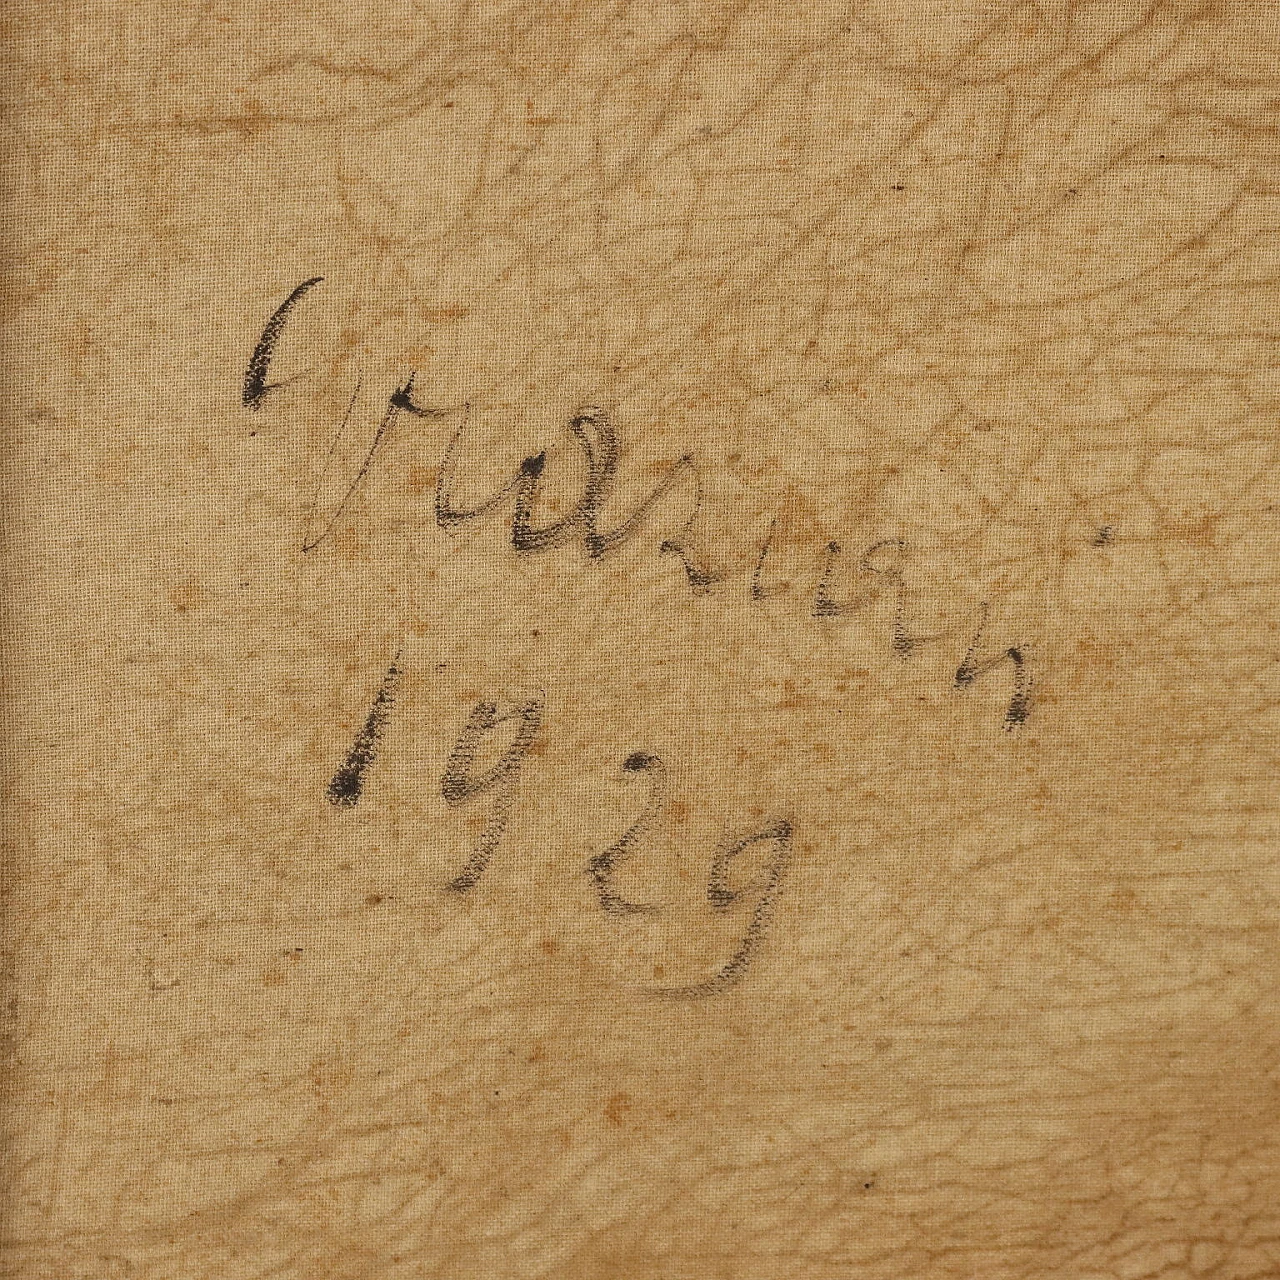 Graziani
1929